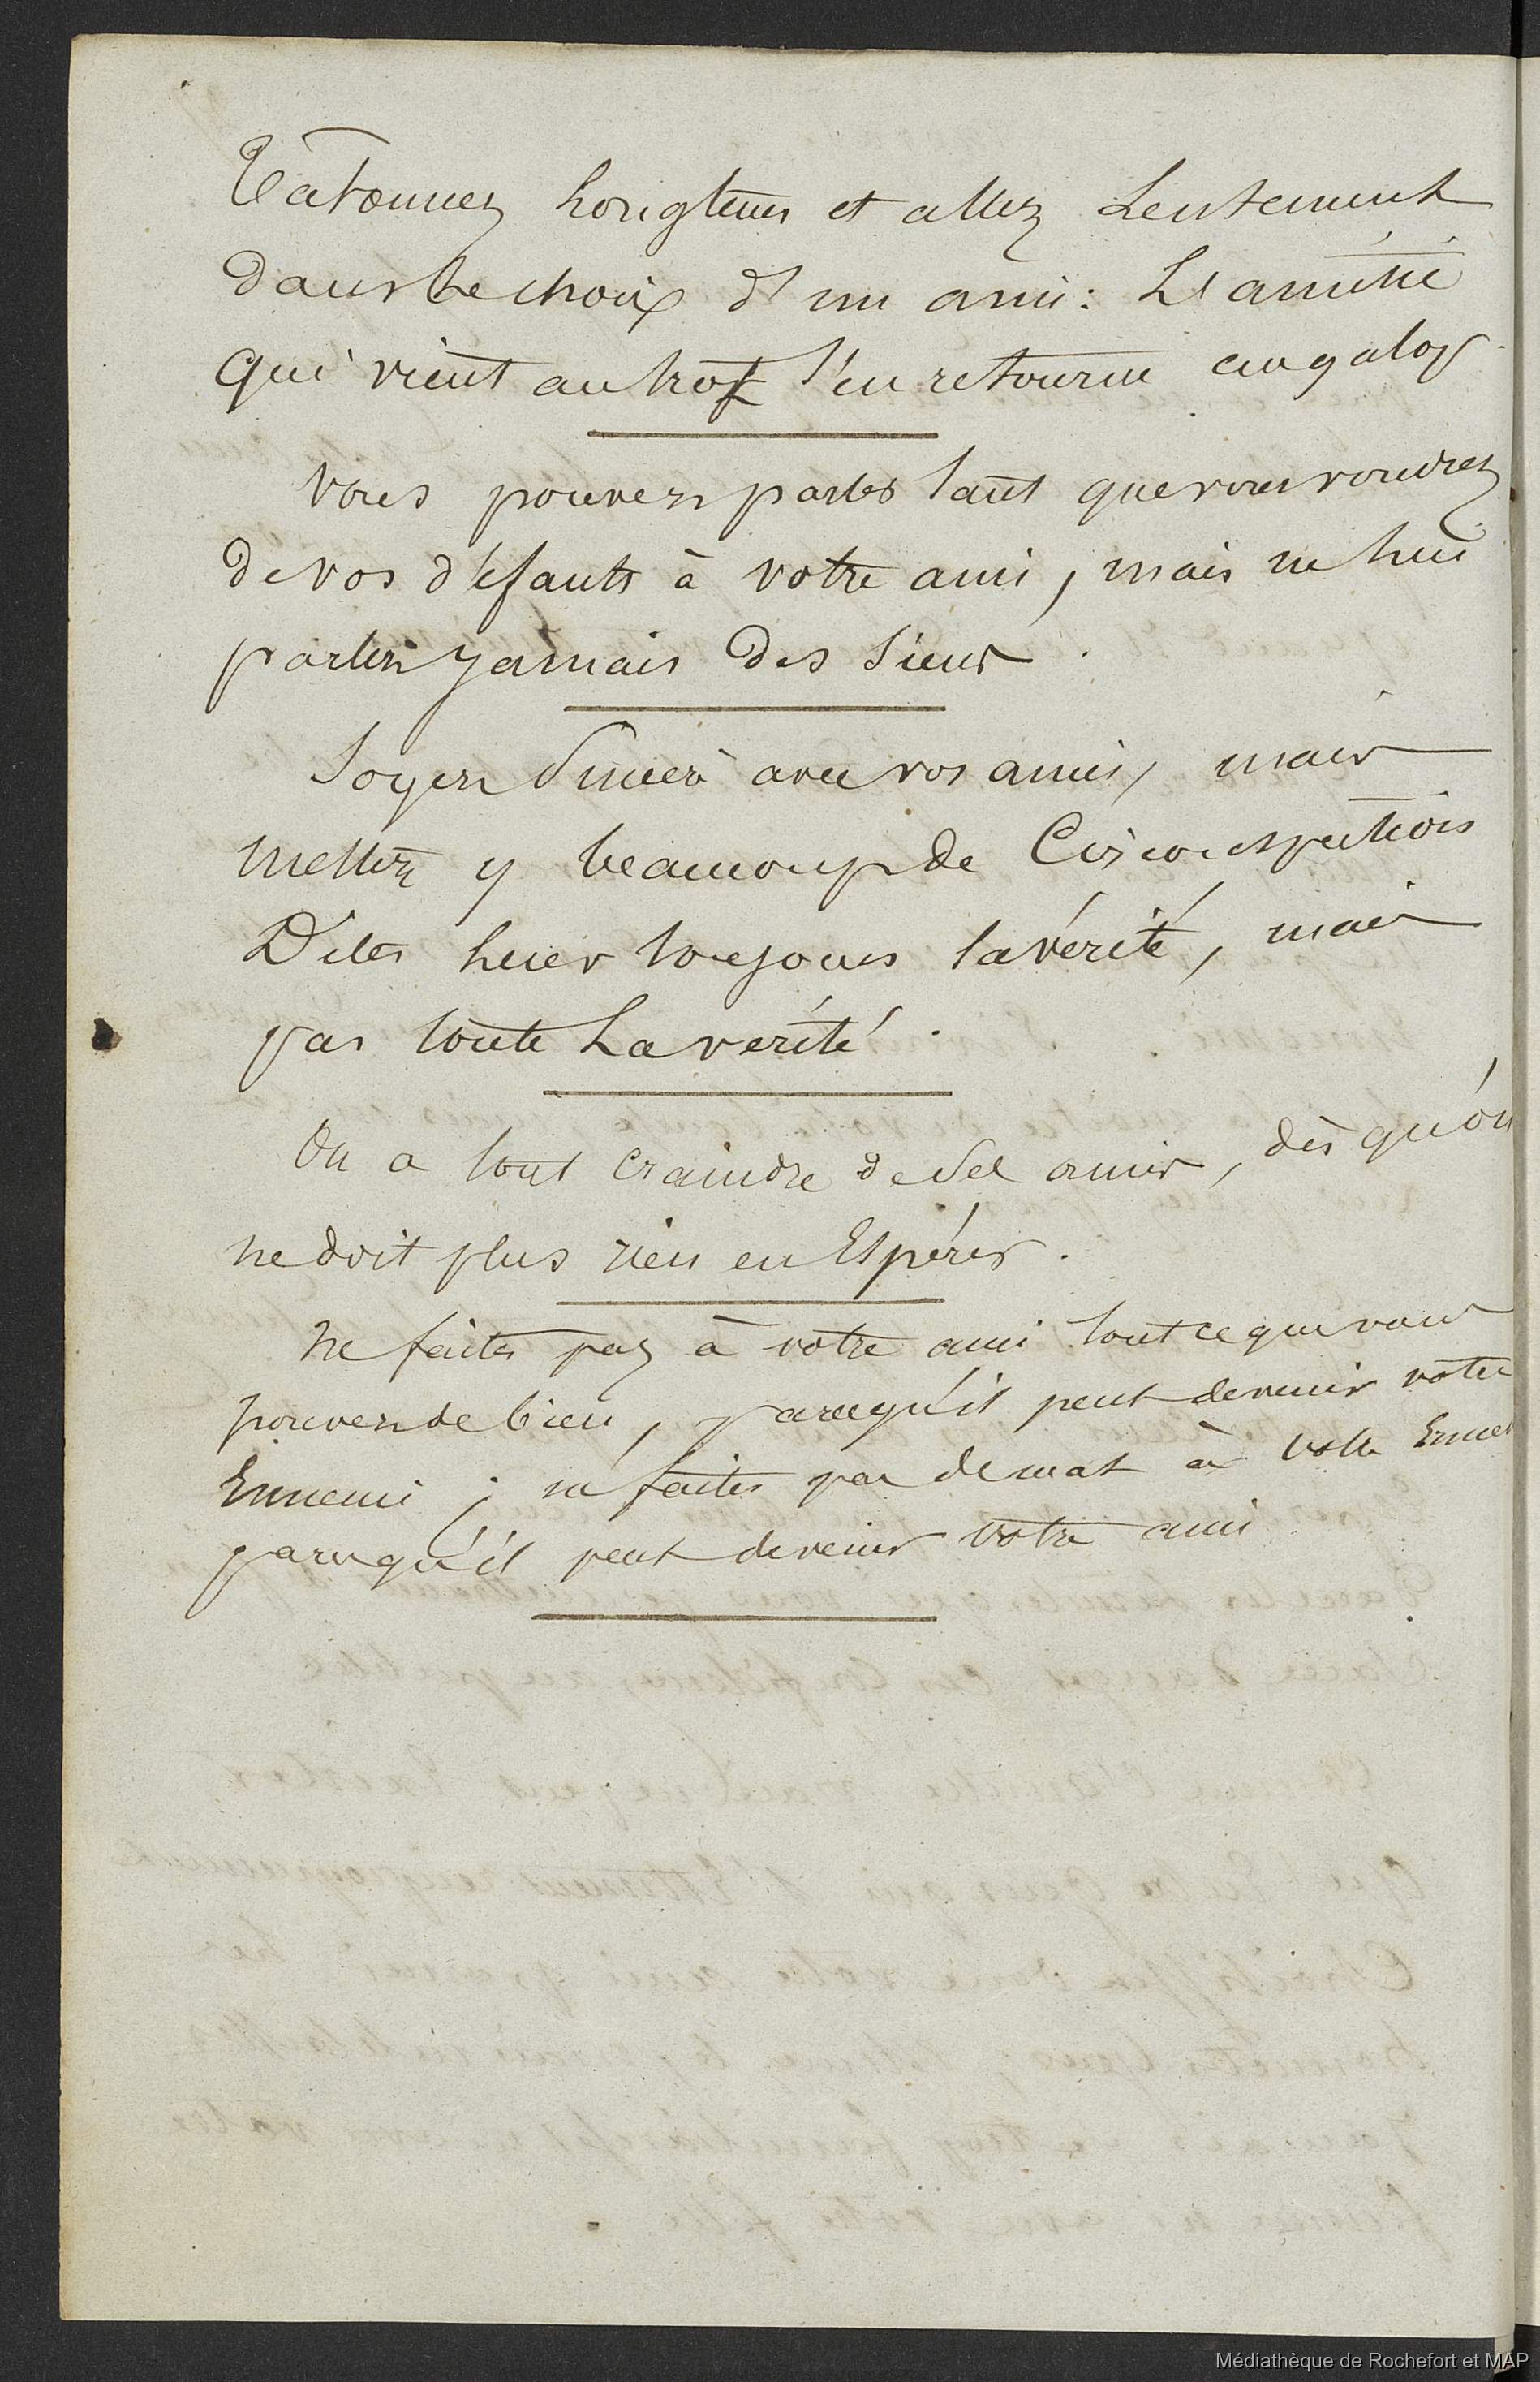 Tâtonnez Longtems et allez Lentement
dans Le choix d'un ami: L'amitié
qui vient au trot s'en retourne au galop
Vous pouvez parler tant que vous voudrez
de vos défauts à votre ami, mais ne Lui
parlez jamais des siens.
Soyez Sincère avec vos amis, mais
mettez y beaucoup de Circonspection
Dites Leur toujours la vérité, mais
pas toute La vérité.
On a tout craindre de ses amis, dès qu'on
ne doit plus rien en Espérer.
Ne faites pas à votre ami tout ce que vous
pouvez de bien, parcequ'il peut devenir votre
Ennemi; ne faites pas de mal à votre Ennemi
parcequ'il peut devenir votre ami
Médiathèque de Rochefort et MAP